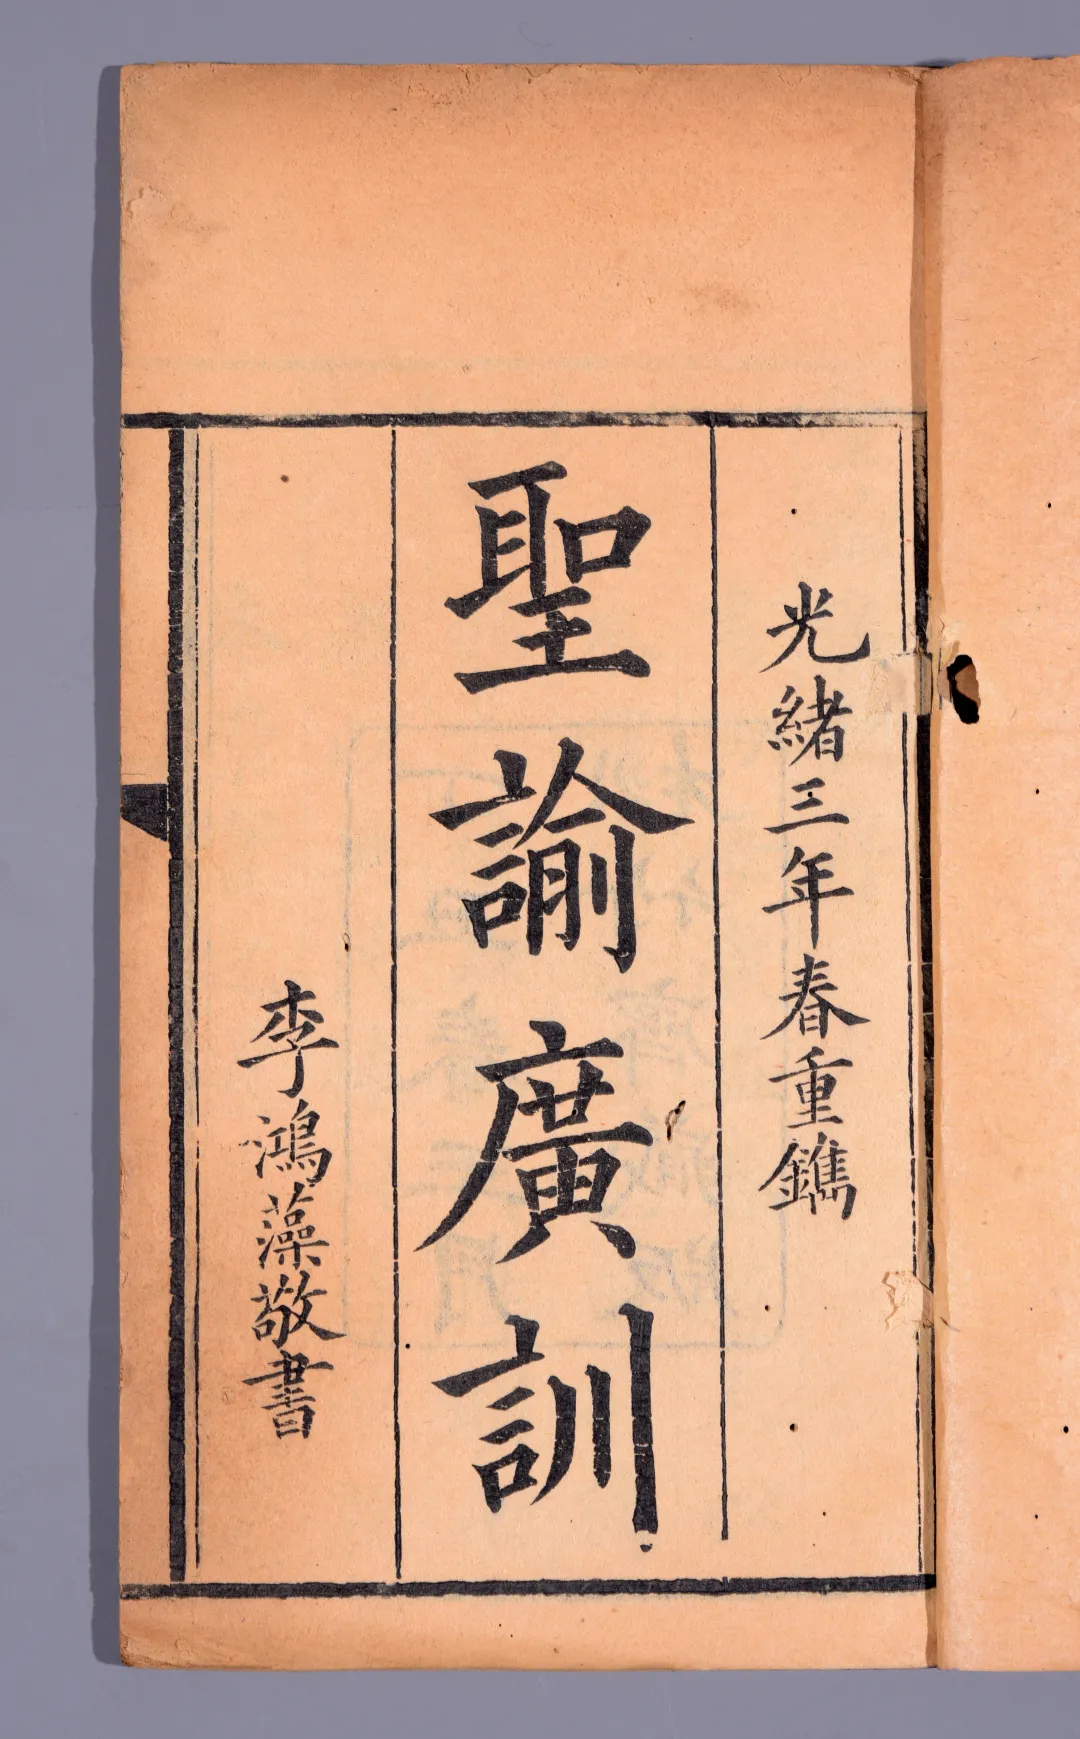 光緒三年春重鐫
聖諭廣訓
李鴻藻敬書